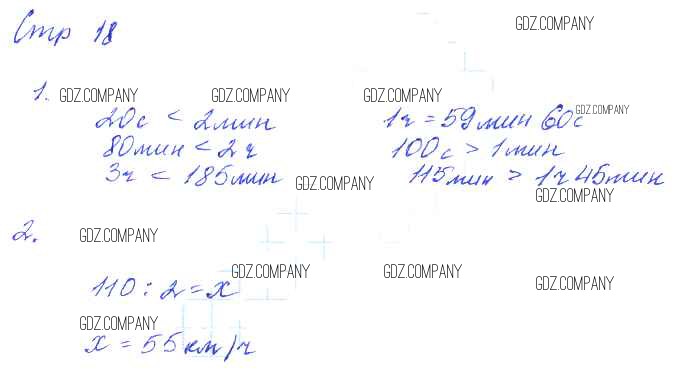 Стр 18
GDZ.COMPANY
1.
GDZ.COMPANY GDZ.COMPANY GDZ.COMPANY GDZ.COMPANY
20с < 2мин 1ч = 59мин 60с
80мин < 2ч 100с > 1мин
3ч < 185мин 115мин > 1ч 45мин
GDZ.COMPANY GDZ.COMPANY
2. GDZ.COMPANY
GDZ.COMPANY GDZ.COMPANY GDZ.COMPANY
110 : 2 = x
GDZ.COMPANY
x = 55км/ч